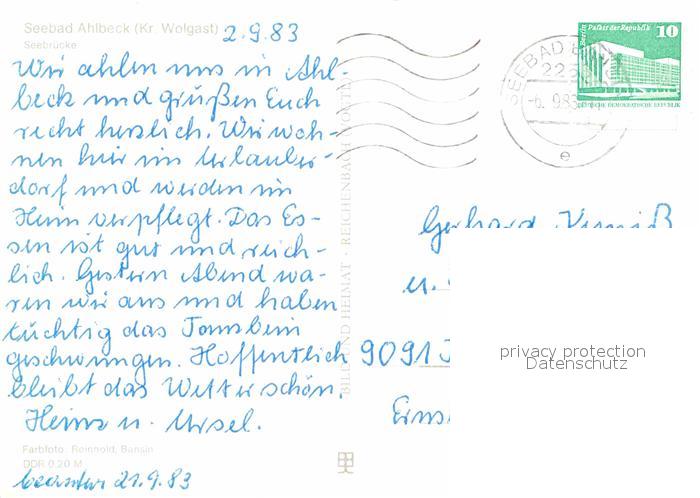 Seebad Ahlbeck (Kr. Wolgast) 2.9.83
Seebrücke
Wir ahlen uns in Ahl-
beck und grüßen Euch
recht herzlich. Wir woh-
nen hier im Urlauber-
dorf und werden im
Heim verpflegt. Das Es-
sen ist gut und reich-
lich. Gestern Abend wa-
ren wir aus und haben
tüchtig das Tanzbein
geschwungen. Hoffentlich
bleibt das Wetter schön.
Heinz u. Ursel.
Farbfoto: Reinhold, Bansin
DDR 0,20 M
21.9.83
BILD UND HEIMAT · REICHENBACH
SEEBAD
-6. 9.83
e
Berlin Palast der Republik 10
DEUTSCHE DEMOKRATISCHE REPUBLIK
Gerhard
u.
9091
privacy protection
Datenschutz